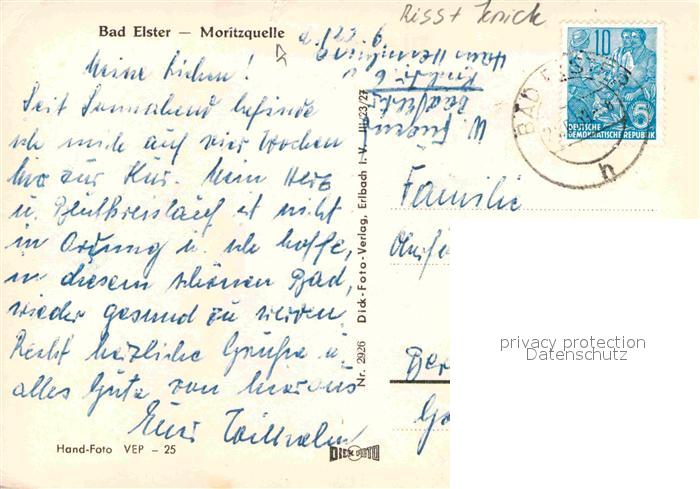 Risst Knick
Bad Elster — Moritzquelle
Meine Lieben!
Seit Sonnabend befinde
ich mich auf vier Wochen
hier zur Kur. Mein Herz
u. Blutkreislauf ist nicht
in Ordnung u. ich hoffe,
in diesem schönen Bad,
wieder gesund zu werden.
Recht herzliche Grüße u.
alles Gute von hieraus
Euer Wilhelm
Hand-Foto VEP - 25
Nr. 2926 Dick-Foto-Verlag, Erlbach i. V. III/23/27
DICK FOTO
10
DEUTSCHE
DEMOKRATISCHE REPUBLIK
BAD ELSTER
h
Familie
privacy protection
Datenschutz